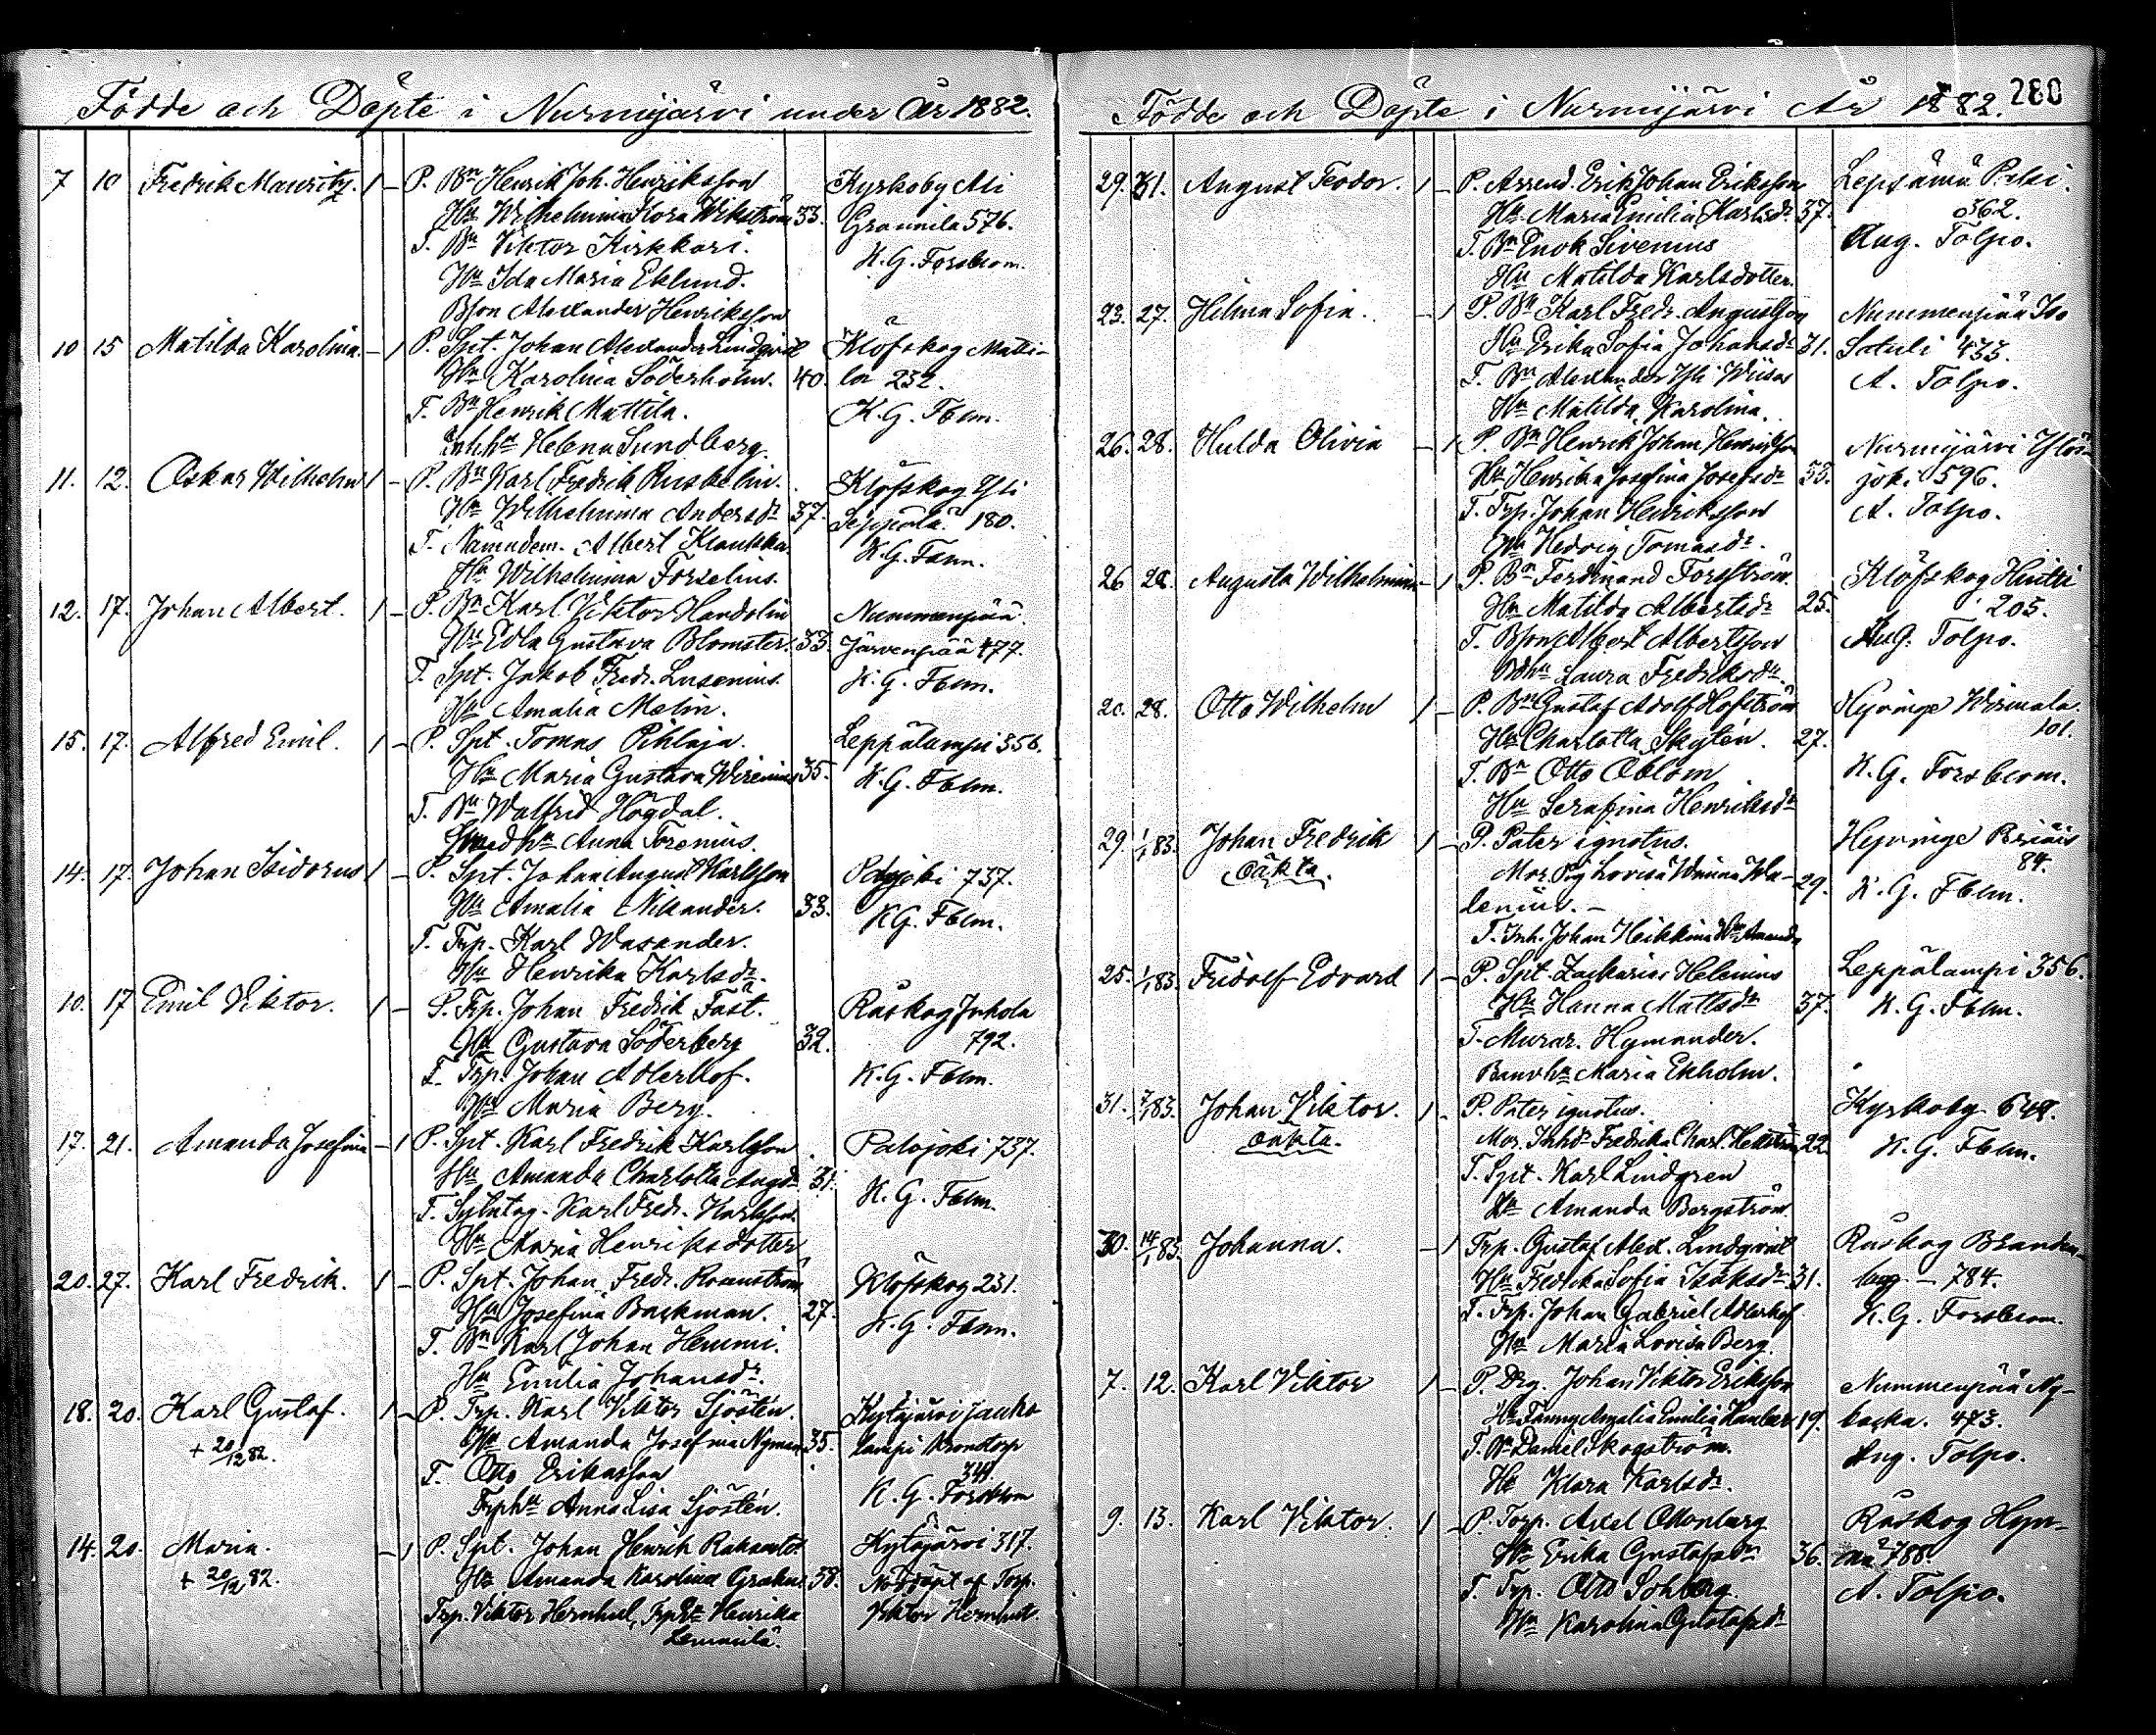 Födde och Döpte i Nurmijärvi under År 1882.
7 10 Fredrik Mauritz. 1 - P. Bn Henrik Joh. Henriksson Kyrkoby Ali
Hu Wilhelmina Flora Wikström 33. Grannila 576.
T. Bn Viktor Kirkkari.
K. G. Forsblom.
Hu Ida Maria Eklund.
Bson Alexander Henriksson
10 15 Matilda Karolina - 1 P. Spt. Johan Alexander Lindqvist Klöfskog Matti-
Hu Karolina Söderholm. 40. la 232.
T. Bn Henrik Mattila. K. G. Fblm.
Inhha Helena Sundberg.
11. 12. Oskar Wilhelm 1 - P. Bn Karl Fredrik Ruskelin. Klöfskog Yli
Hu Wilhelmina Andersdr 37. Seppälä 180.
T. Nämndem. Albert Krankka
K. G. Fbm.
Hu Wilhelmina Forselius.
12. 17. Johan Albert. 1 - P. Bn Karl Viktor Handolin Nummenpää
Hu Edla Gustava Blomster. 33. Järvenpää 477.
T. Spt. Jakob Fredr. Lusenius. K. G. Fblm.
Hu Amalia Melin.
15. 17. Alfred Emil. 1 - P. Spt. Tomas Pihlaja. Leppälampi 356.
Hu Maria Gustava Wirenius 35. K. G. Fblm.
T. Bn Walfrid Högdal.
Smedha Anna Torenius.
14. 17. Johan Isidorus 1 - P. Spt. Johan August Karlsson Palojoki 737.
Hu Amalia Nikander. 33. K. G. Fblm.
T. Trp. Karl Wasander.
Hu Henrika Karlsdr.
10. 17 Emil Viktor. 1 - P. Trp. Johan Fredrik Fast. Råskog Inhola
Hu Gustava Söderberg 32. 792.
T. Trp. Johan Adlerhof. K. G. Fblm.
Hu Maria Berg.
17. 21. Amanda Josefina - 1 P. Spt. Karl Fredrik Karlsson Palojoki 737.
Hu Amanda Charlotta Augdr 31. K. G. Fblm.
T. Sytntag. Karl Fredr. Karlsson.
Hu Maria Henriksdotter
20. 27. Karl Fredrik. 1 - P. Spt. Johan Fredr. Rosenström Klöfskog 231.
Hu Josefina Backman. 27. K. G. Fbm.
T. Bn Karl Johan Hemmi.
Hu Emilia Johansdr.
18. 20. Karl Gustaf. 1 - P. Trp. Karl Viktor Sjöstén. Kytäjärvi Jauho
+ 20/12 82. Hu Amanda Josefina Nyman 35. lampi Kronotorp
T. Otto Eriksson 344
Trpha Anna Lisa Sjöstén. K. G. Forsblom
14. 20. Maria. - 1 P. Spt. Johan Henrik Kytäjärvi 317.
+ 20/12 82. Hu Amanda Karolina 38. Nöddöpt af Torp.
Trp. Viktor Hernhut, Henrika Viktor Hernhut.
Lemmilä.
280
Födde och Döpte i Nurmijärvi År 1882.
29. 31. August Teodor. 1 - P. Arrend. Erik Johan Eriksson Lepsämä Pelsi.
Hu Maria Emilia Karlsdr 37. 362.
T. Bn Enok Sivenius Aug. Tolpo.
Hu Matilda Karlsdotter
23. 27. Hilma Sofia. - 1 P. Bn Karl Fredr. Augustsson Nummenpää Iso
Hu Erika Sofia Johansdr 31. Satuli 433.
T. Bn Alexander Yli Wiisas A. Tolpo.
Hu Matilda Karolina.
26. 28. Hulda Olivia - 1 P. Bn Henrik Johan Henriksson Nurmijärvi Ylös-
Hu Henrika Josefina Josefsdr 33. joki 596.
T. Trp. Johan Henriksson A. Tolpo.
Hu Hedvig Tomasdr.
26 28. Augusta Wilhelmina - 1 P. Bn Ferdinand Forsström Klöfskog
Hu Matilda Albertsdr 25. 205.
T. Bson Albert Albertsson Aug. Tolpo.
Laura Fredriksdr.
20. 28. Otto Wilhelm 1 - P. Bn Gustaf Adolf Löfström Hyvinge Wirmala
Hu Charlotta Skytén. 27. 101.
T. Bn Otto Oblom K. G. Forsblom.
Hu Serafina Henriksdr
29. 1/1 83. Johan Fredrik 1 - P. Pater ignotus. Hyvinge
oäkta. Mor. Pig. Lovisa Wilmina Wa- 29. 84.
lenius. - K. G. Fblm.
T. Inh. Johan Heikkinä Hu Amanda
25. 1/1 83. Fridolf Edvard 1 - P. Spt. Zackarias Helenius Leppälampi 356.
Hu Hanna Mattsdr 37. K. G. Fblm.
T. Murar. Hymander.
Banvha Maria Ekholm.
31. 7/1 83. Johan Viktor. 1 - P. Pater ignotus. Kyrkoby 648.
oäkta. Mor. Inhdr Fredrika Charl. Hellström 22. K. G. Fblm.
T. Spt. Karl Lindgren
Hu Amanda Bergström
30. 14/1 83 Johanna. - 1 Trp. Gustaf Alex. Lindqvist Råskog Branden-
Hu Fredrika Sofia Isaksdr 31. burg - 784.
T. Trp. Johan Gabriel Adlerhof K. G. Forsblom.
Hu Maria Lovisa Berg.
7. 12. Karl Viktor 1 - P. Drg. Johan Viktor Eriksson Nummenpää Ny-
Hu Fanny Amalia Emilia 19. backa. 473.
T. Bn Daniel Skogström. Aug. Tolpo.
Hu Klara Karlsdr.
9. 13. Karl Viktor. 1 - P. Torp. Axel Ottonburg Råskog Hyn-
Hu Erika Gustafsdr 36. nä 788.
T. Trp. Otto Sohlberg A. Tolpo.
Hu Karolina Gustafsdr